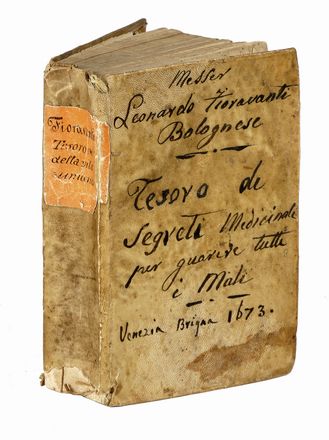 Fioravanti
Tesoro
della vita
umana
Messer
Leonardo Fioravanti
Bolognese
Tesoro de
Segreti Medicinali
per guarire tutti
i Mali
Venezia Brigna 1673.